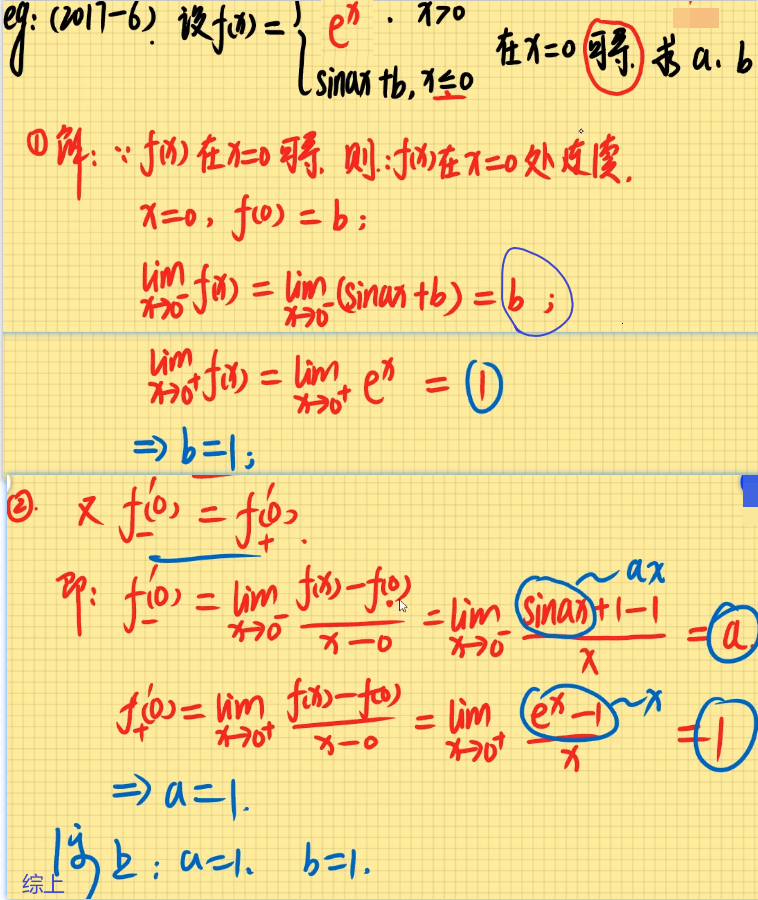 eg: (2017-6). 设f(x)={ e^x . x>0
sinax+b, x≤0 在x=0 可导. 求 a. b
① 解: ∵ f(x) 在x=0 可导. 则:f(x)在x=0 处连续.
x=0, f(0) = b;
lim x→0⁻ f(x) = lim x→0⁻ (sinax+b) = b ;
lim x→0⁺ f(x) = lim x→0⁺ e^x = 1
⇒ b=1;
②. 又 f₋'(0) = f₊'(0).
即: f₋'(0) = lim x→0⁻ (f(x)-f(0))/(x-0) = lim x→0⁻ (sinax+1-1)/x = a. ~ax
f₊'(0) = lim x→0⁺ (f(x)-f(0))/(x-0) = lim x→0⁺ (e^x-1)/x = 1 ~x
⇒ a=1.
综上: a=1. b=1.
综上